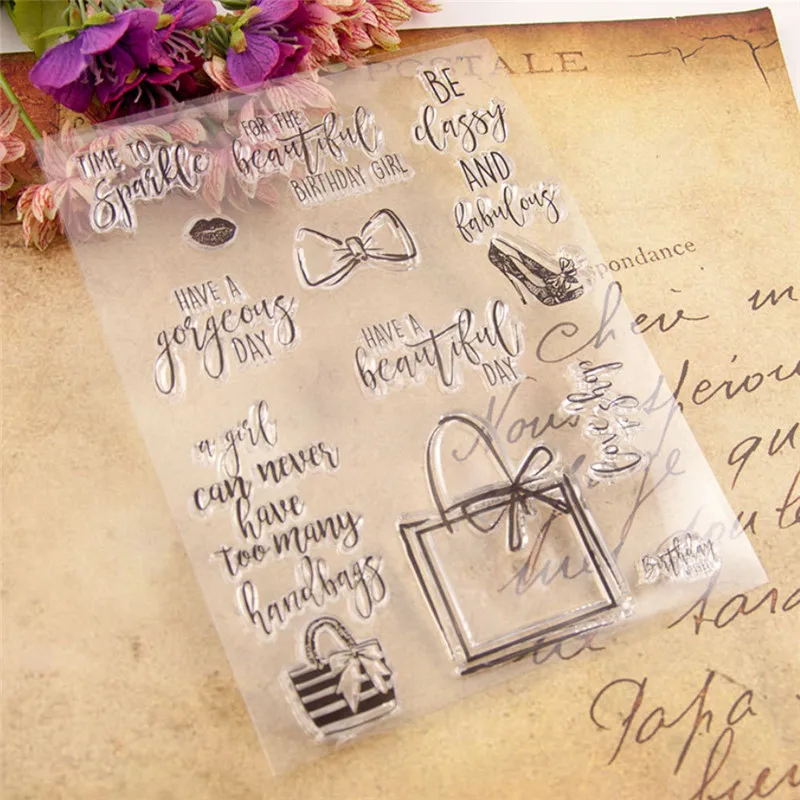 POSTALE
TIME TO
Sparkle
FOR THE
beautiful
BIRTHDAY GIRL
BE
classy
AND
fabulous
pondance
HAVE A
gorgeous
DAY
HAVE A
beautiful
DAY
Chère
Nous
que
a girl
can never
have
too many
handbags
Love to Shop
Birthday
Papa